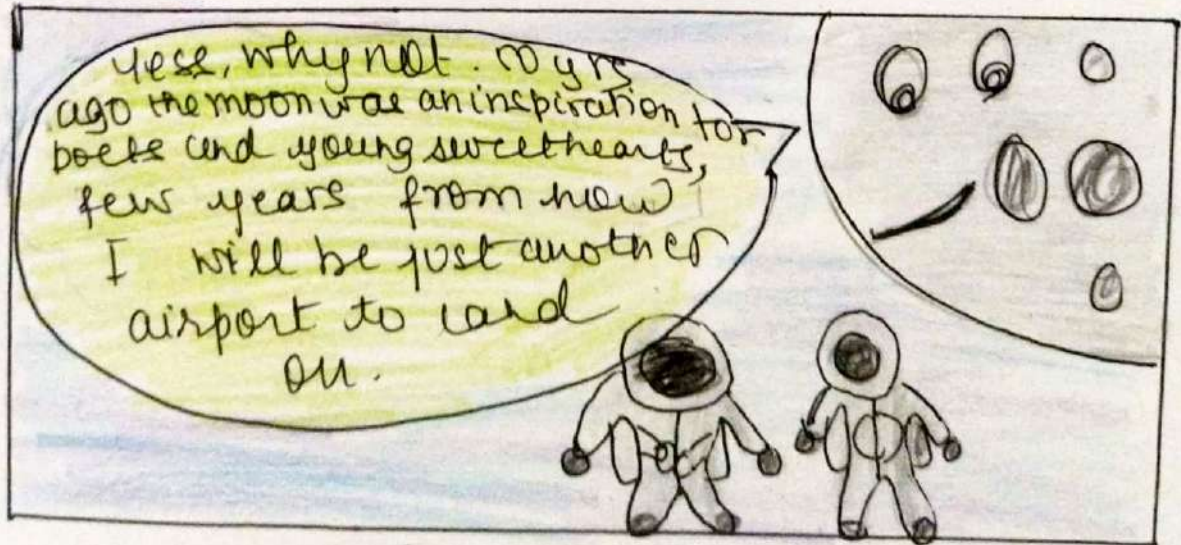 Yess, why not. 10 yrs
ago the moon was an inspiration for
poets and young sweethearts,
few years from now
I will be just another
airport to land
on.